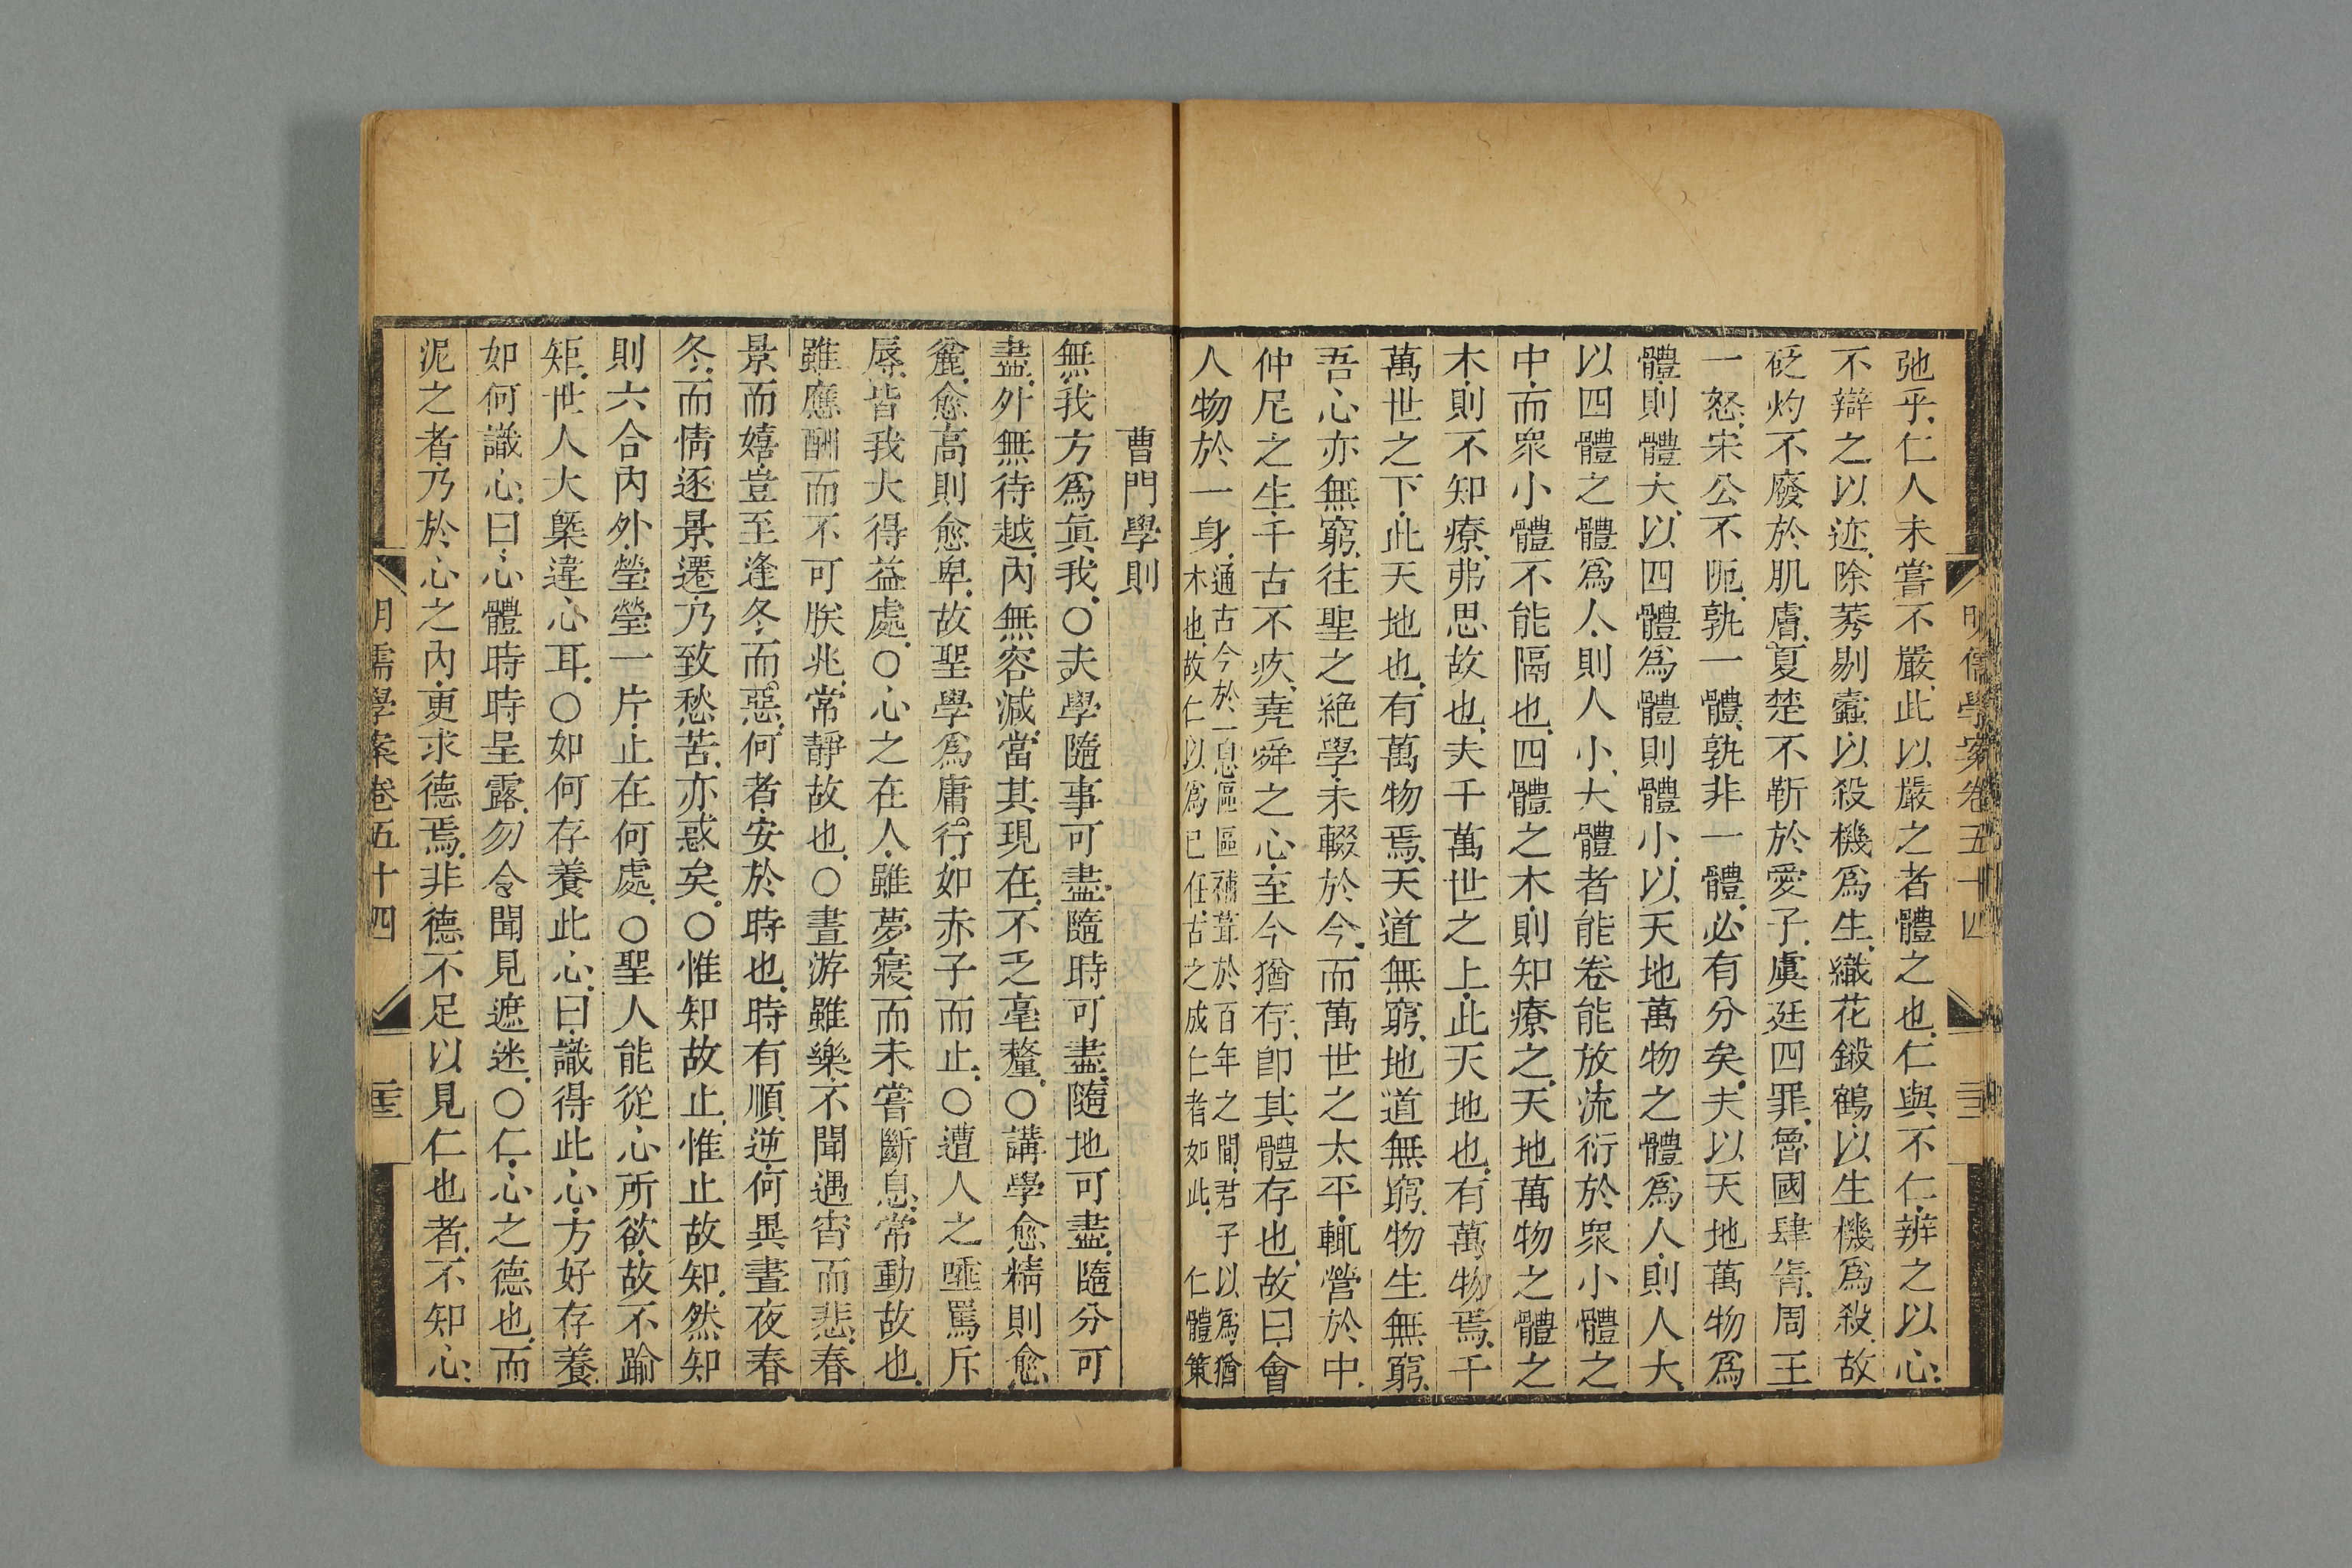 明儒學案卷五十四
弛乎仁人未嘗不嚴此以嚴之者體之也仁與不仁辨之以心
不辯之以迹除莠剔蠹以殺機爲生織花鍛鶴以生機爲殺故
砭灼不廢於肌膚夏楚不靳於愛子虞廷四罪魯國肆眚周王
一怒宋公不阨孰一體孰非一體必有分矣夫以天地萬物爲
體則體大以四體爲體則體小以天地萬物之體爲人則人大
以四體之體爲人則人小大體者能卷能放流衍於眾小體之
中而眾小體不能隔也四體之木則知療之天地萬物之體之
木則不知療弗思故也夫千萬世之上此天地也有萬物焉千
萬世之下此天地也有萬物焉天道無窮地道無窮物生無窮
吾心亦無窮往聖之絕學未輟於今而萬世之太平輒營於中
仲尼之生千古不疚堯舜之心至今猶存卽其體存也故曰會
人物於一身通古今於一息區區補葺於百年之間君子以爲猶
木也故仁以爲己任古之成仁者如此 仁體策
曹門學則
無我方爲眞我○夫學隨事可盡隨時可盡隨地可盡隨分可
盡外無待越內無容減當其現在不乏毫釐○講學愈精則愈
麄愈高則愈卑故聖學爲庸行如赤子而止○遭人之唾罵斥
辱皆我大得益處○心之在人雖夢寢而未嘗斷息常動故也
雖應酬而不可朕兆常靜故也○晝游雖樂不聞遇宵而悲春
景而嬉豈至逢冬而惡何者安於時也時有順逆何異晝夜春
冬而情逐景遷乃致愁苦亦惑矣○惟知故止惟止故知然知
則六合內外瑩瑩一片止在何處○聖人能從心所欲故不踰
矩世人大槩違心耳○如何存養此心曰識得此心方好存養
如何識心曰心體時時呈露勿令聞見遮迷○仁心之德也而
泥之者乃於心之內更求德焉非德不足以見仁也者不知心
明儒學案卷五十四